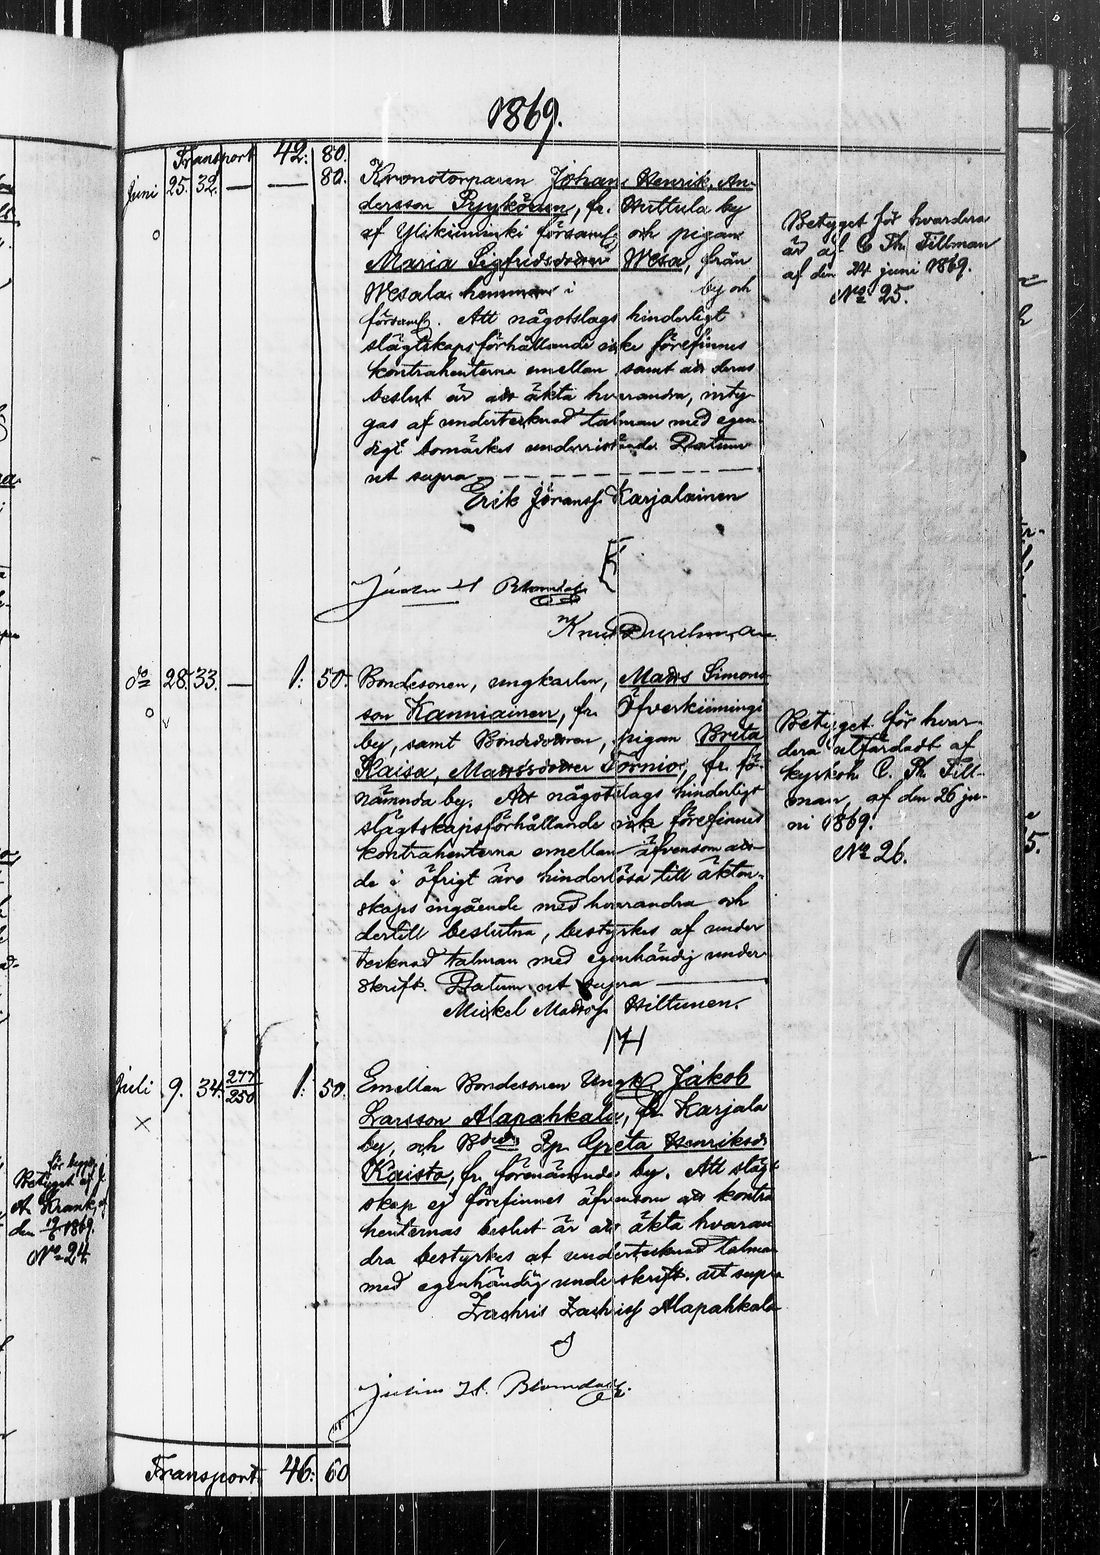 1869.
Transport 42: 80.
Juni 25. 32. — — 80. Kronotorparen Johan Henrik An-
dersson Pyykönen, fr. Huttula by
af Ylikiiminki församl. och pigan
Maria Sigfridsdotter Wesa, från
Wesala hemman i by och
församl. Att någotslags hinderligt
slägtskapsförhållande icke förefinnes
kontrahenterna emellan samt att deras
beslut är att äkta hvarandra, inty-
gas af undertecknad talman med egen-
digt bomärkes undseristande Datum
ut supra
Erik Jöranss. Karjalainen
Betyget för hvardera
är af C Th. Tillman
af den 24 juni 1869.
No 25.
Julius H Blomdahl
Knut
do 28. 33. — 1: 50. Bondesonen, ungkarlen, Matts Simons-
son Kanniainen, fr. Öfverkiimingi
by, samt Bondedottren, pigan Brita
Kaisa, Mattsdotter Tornio, fr. fö-
nämnda by. Att någotslags hinderligt
slägtskapsförhållande icke förefinnes
kontrahenterna emellan äfvensom att
de i öfrigt äro hinderlösa till äkten-
skaps ingående med hvarandra och
dertill beslutna, bestyrkes af under
tecknad talman med egenhändig under-
skrift. Datum ut supra
Mickel Matss. Hiltunen.
MH
Betyget för hvar-
dera utfärdadt af
kyrkoh. C. Th. Till-
man, af den 26 ju-
ni 1869.
No 26.
Juli 9. 34. 277/250 1: 50. Emellan Bondesonen Ungk. Jakob
Larsson Alapahkala, fr. Karjala
by, och Bdedr. Pp. Greta Henriksdr
Kaisto, fr. förenämnde by. Att slägt
skap ej förefinnes äfvensom att kontra
henternas beslut är att äkta hvaran
dra bestyrkes af undertecknad talman
med egenhändig underskrift. ut supra
Zachris Zachriss Alapahkala
Julius H. Blomdahl.
för begge
Betyget af J.
A. Krank, af
den 19/6 1869.
No 24.
Transport 46: 60